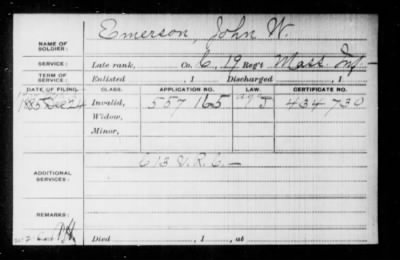 NAME OF SOLDIER: Emerson, John W.
SERVICE: Late rank, Co. 6, 19 Reg't Mass. Inf.
TERM OF SERVICE: Enlisted , 1 Discharged , 1
DATE OF FILING. CLASS. APPLICATION NO. LAW. CERTIFICATE NO.
1885 Dec 24 Invalid, 557 165 J 434 730
Widow,
Minor,
ADDITIONAL SERVICES: C 13 V.R.C.
REMARKS:
Died , 1 , at